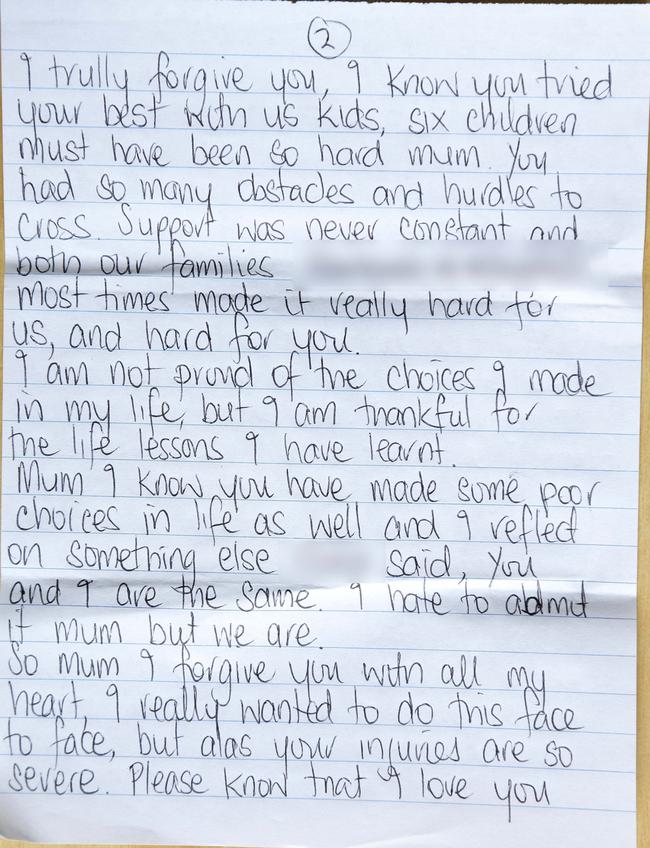 2
I trully forgive you, I know you tried
your best with us kids, six children
must have been so hard mum. You
had so many obstacles and hurdles to
cross. Support was never constant and
both our families
most times made it really hard for
us, and hard for you.
I am not proud of the choices I made
in my life, but I am thankful for
the life lessons I have learnt.
Mum I know you have made some poor
choices in life as well and I reflect
on something else said, you
and I are the same. I hate to admit
it mum but we are.
So mum I forgive you with all my
heart, I really wanted to do this face
to face, but alas your injuries are so
severe. Please know that I love you